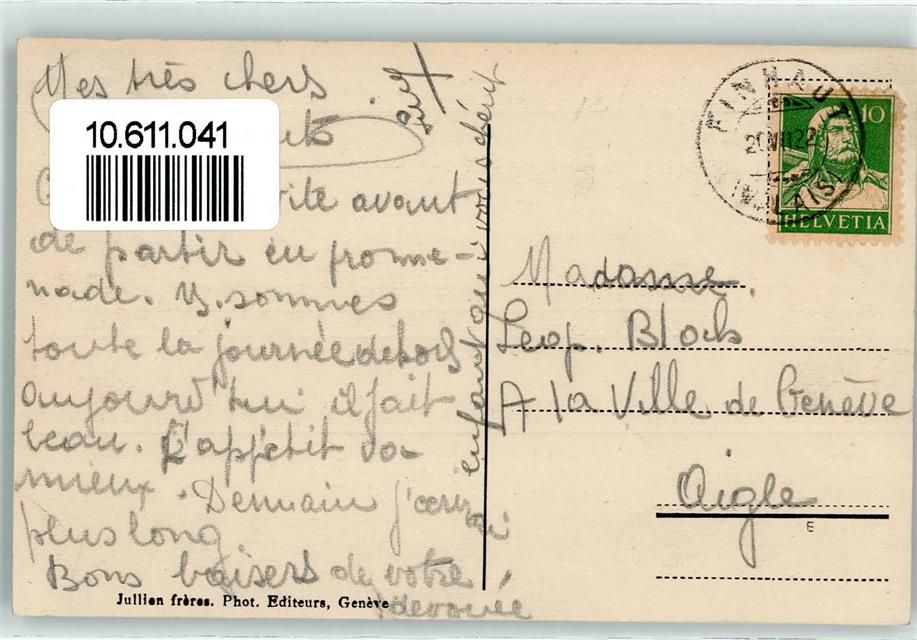 Mes très chers
10.611.041
vite avant
de partir en prome-
nade. N. sommes
toute la journée dehors
aujourd'hui il fait
beau. L'appétit va
mieux. Demain j'écrirai
plus long
Bons baisers de votre
dévouée
enfant qui vous chérit
Jullien frères. Phot. Editeurs, Genève
FINHAUT
22
(VALAIS)
10
HELVETIA
Madame
Leop. Bloch
A la Ville de Genève
Aigle
E